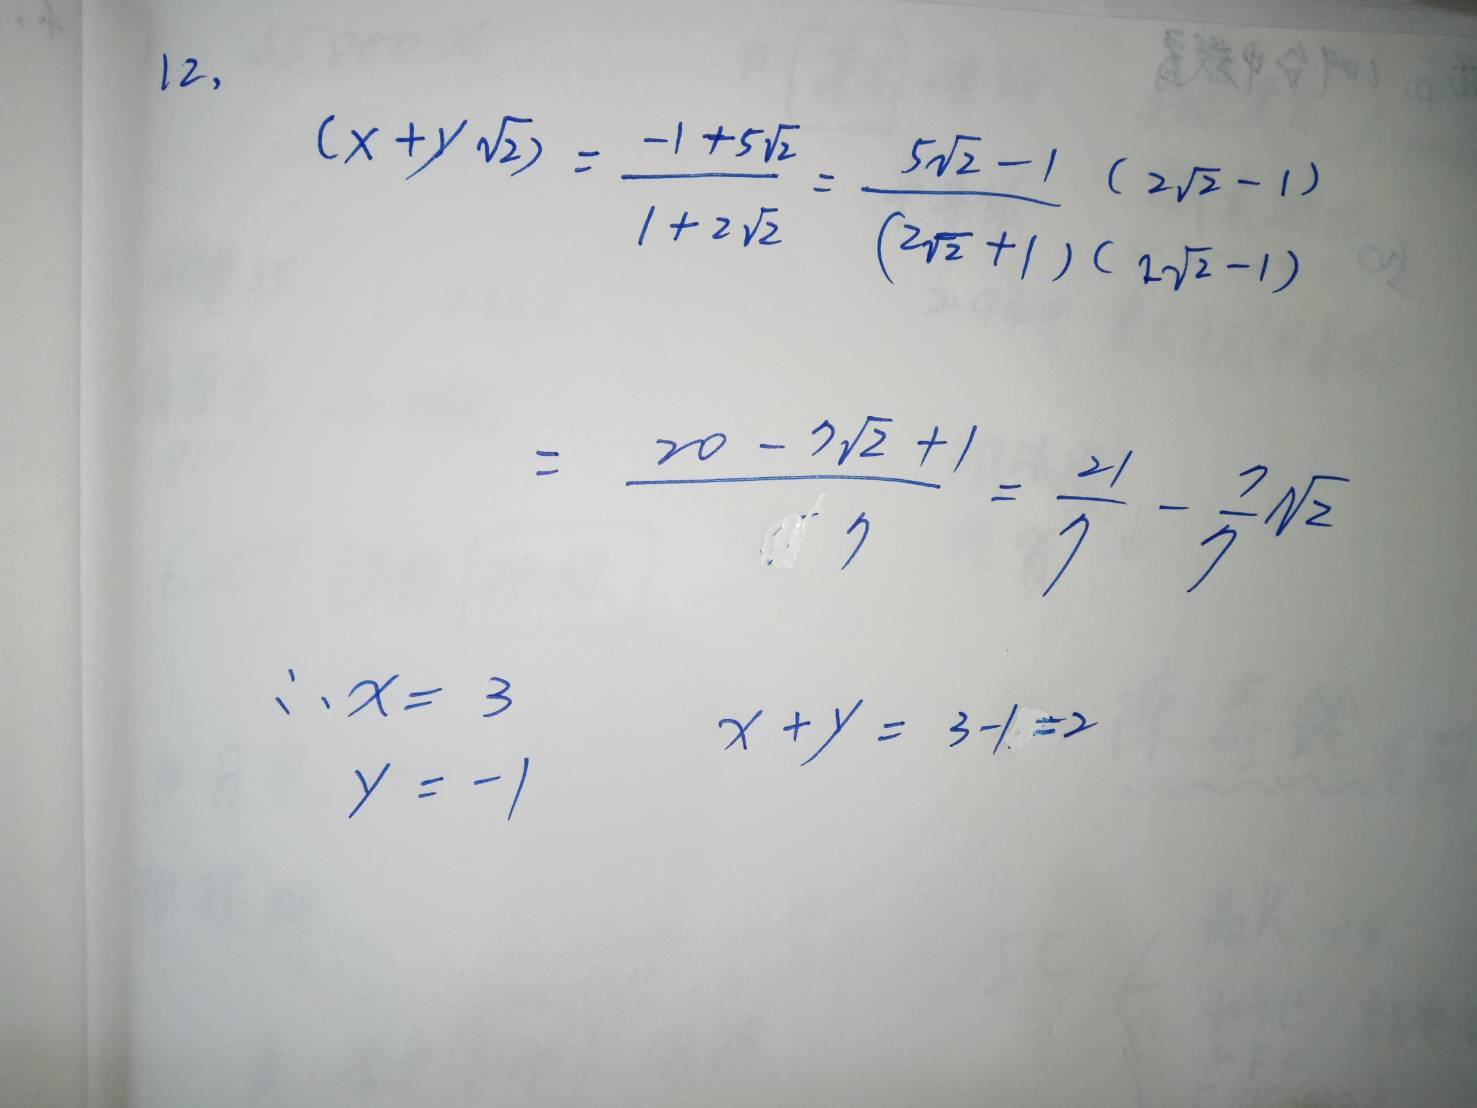 12,
(x+y√2) = (-1+5√2)/(1+2√2) = (5√2-1)/(2√2+1) (2√2-1)/(2√2-1)
= (20-7√2+1)/7 = 21/7 - 7/7√2
∴ x = 3
x+y = 3-1=2
y = -1